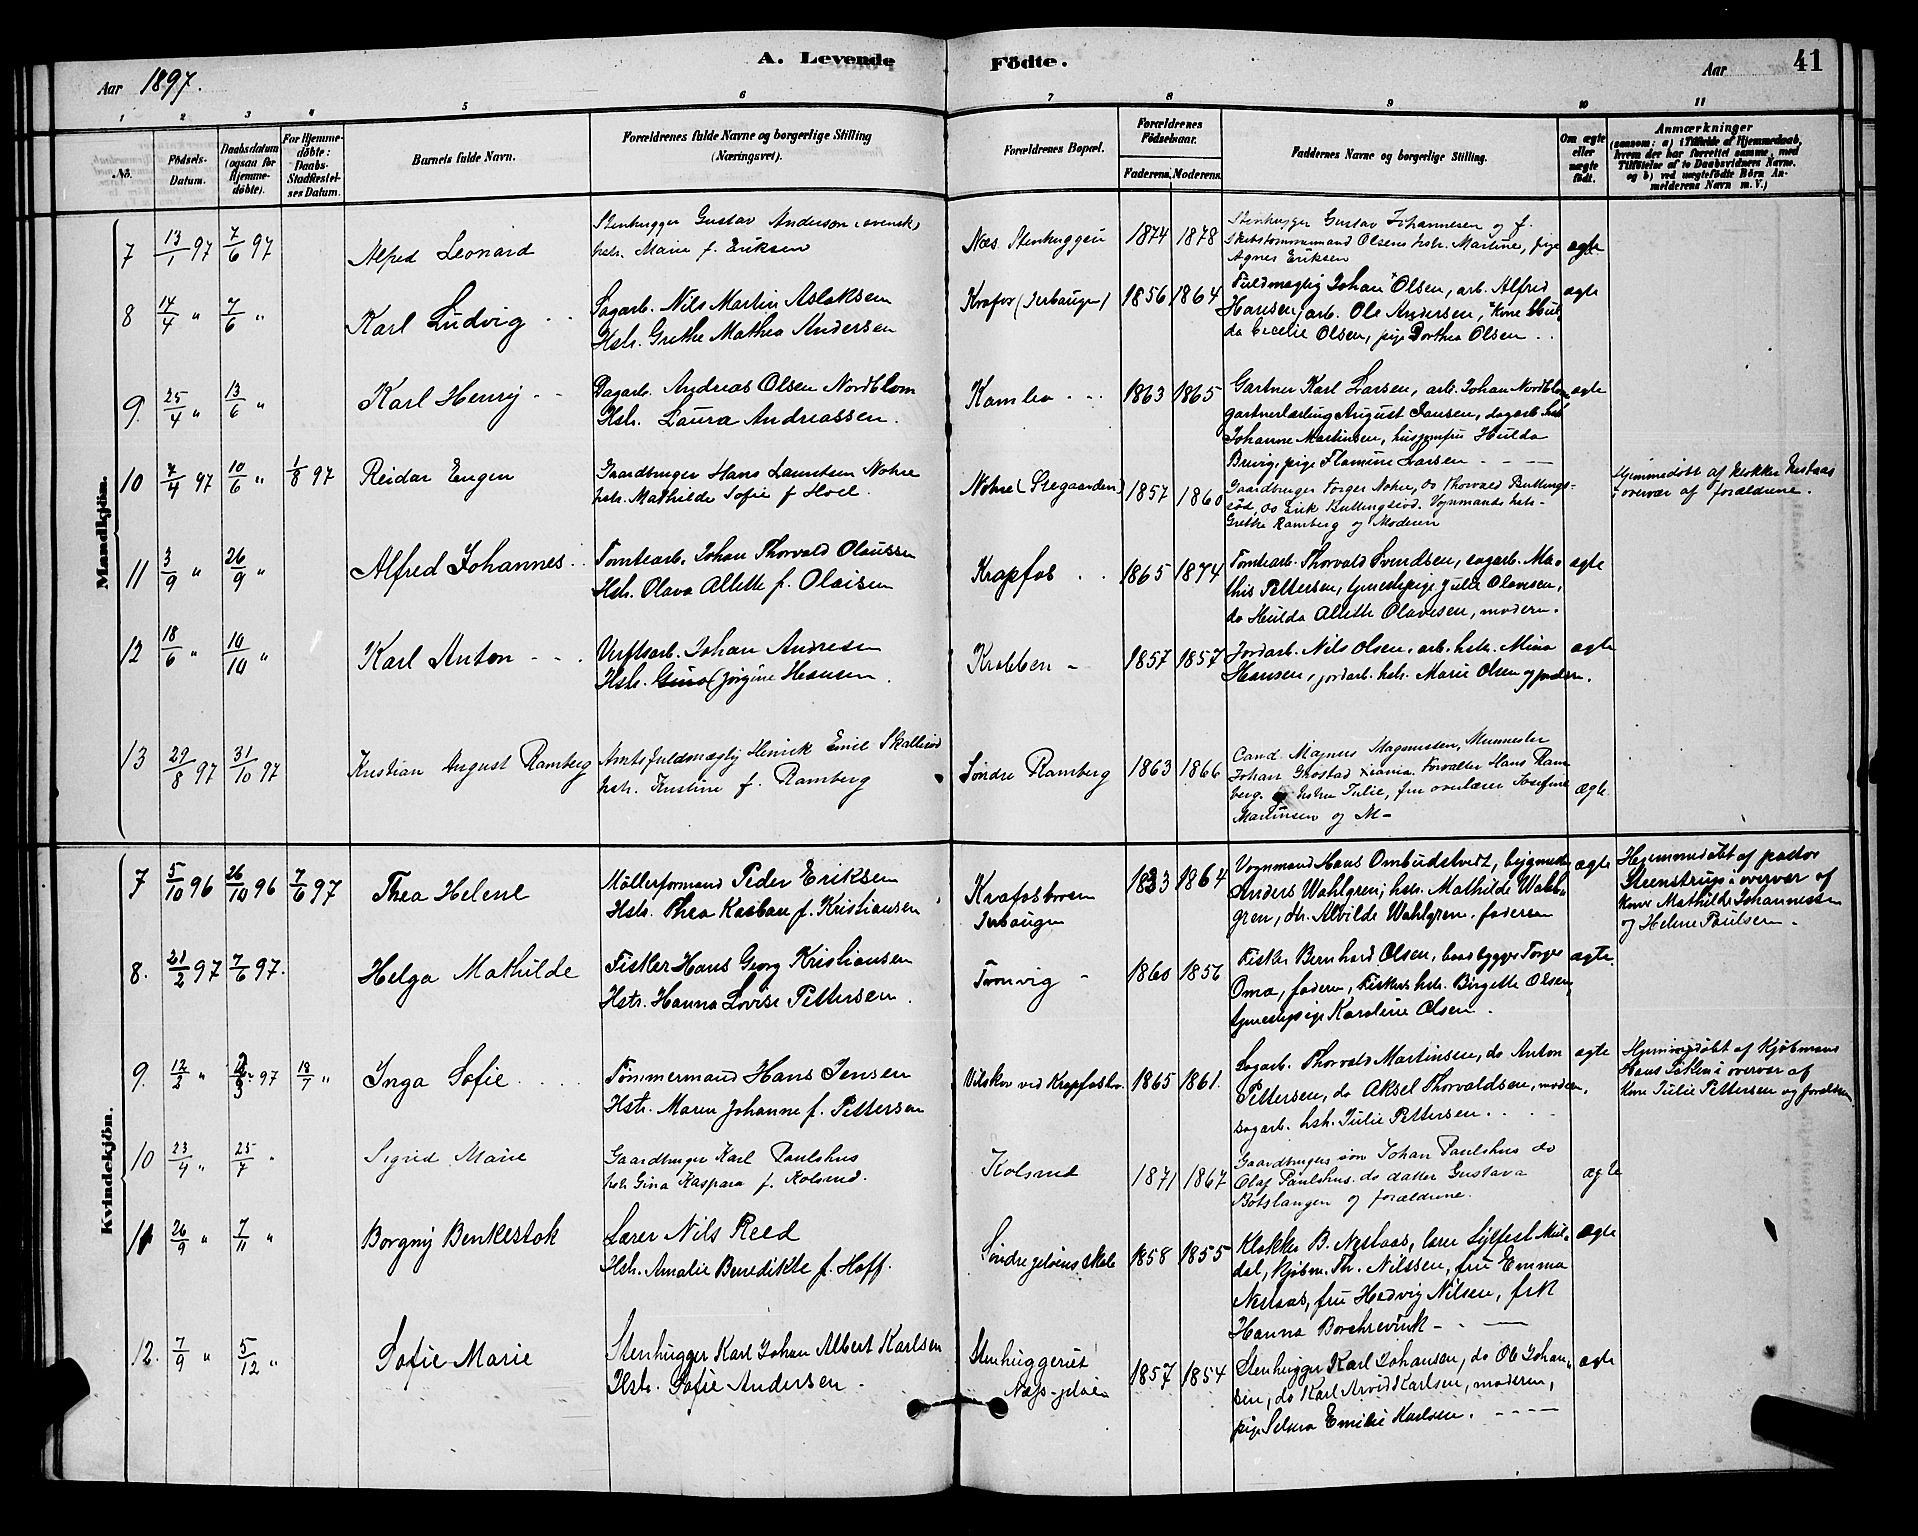 A. Levende Födte.
41
Aar 1897.
Aar
1 2 3 4 5 6 7 8 9 10 11
No.
Födsels-Datum.
Daabsdatum (ogsaa for Hjemme-döbte).
For Hjemme-döbte: Daabs-Stadfæstel-ses Datum.
Barnets fulde Navn.
Forældrenes fulde Navne og borgerlige Stilling (Næringsvei).
Forældrenes Bopæl.
Forældrenes Födselsaar.
Faderens. Moderens.
Faddernes Navne og borgerlige Stilling.
Om ægte eller uægte födt.
Anmærkninger
(saasom: a) i Tilfælde af Hjemmedaab, hvem der har forrettet samme, med Tilföielse af to Daabsvidners Navne, og b) ved uægtefödte Börn An-melderens Navn m. V.)
Mandkjön.
7 13/1 97 7/6 97 Alfred Leonard
Stenhugger Gustav Anderson, svensk,
hstr. Marie f. Eriksen
Næs Stenhuggeri 1874 1878
Stenhugger Gustav Johannesen og f.
Olsens hstr. Martine, pige
Agnes Eriksen
ægte
8 14/4 " 7/6 " Karl Ludvig
Sagarb. Nils Martin Aslaksen
Hstr. Grethe Mathea Andersen
Krafor 1856 1864
Fuldmægtig Johan Olsen, arb. Alfred
Hansen, arb. Ole Andersen, kone Hul-
da Cecelie Olsen, pige Dorthea Olsen
ægte
9. 25/4 " 13/6 " Karl Henry
Dagarb. Andreas Olsen Nordblom
Hstr. Laura Andreassen.
Kambo 1863 1865
Gartner Karl Larsen, arb. Johan Nordblom
gartnerlærling August Jansen, dagarb. hstr.
Johanne Martinsen, husjomfru Hulda
Brevig, pige Flamine Larsen
ægte
10 7/4 97 10/6 " 1/8 97 Reidar Engen
Gaardbruger Hans Lauritsen Nohre
hstr. Mathilde Sofie f. Hoel.
Nohre 1857 1860
Gaardbruger Torger Nohre, do Thorvald
do Erik Vognmands hstr.
Grethe Ramberg og Moderen
Hjemmedöbt af klokker Nestaas
i overvær af forældrene.
11 3/9 " 26/9 " Alfred Johannes
Tomtearb. Johan Thorvald Olaussen
Hstr. Olava Alette f. Olaisen
Krapfos 1865 1874
Tomtearb. Thorvald Svendsen, sagarb. Ma-
this Pettersen, tjenestepige Julie Olavesen,
do Hulda Alette Olavesen, modern.
ægte
12 18/6 " 10/10 " Karl Anton
Verftsarb. Johan Andresen
Hstr. Gina (Jörgine Hansen.
Krabben 1857 1857
Jordarb. Nils Olsen, arb. hstr. Mina
Hansen, jordarb. hstr. Marie Olsen og
ægte
13 29/8 97 31/10 97 Kristian August Ramberg
Amtsfuldmægtig Henrik Emil
hstr. Kristine f. Ramberg
Söndre Ramberg 1863 1866
Cand. Magnus Magnussen,
Johan Forvalter Hans Ram
berg. hstru Julie, fru overlærer Josefine
Martinsen og M-
ægte
Kvindekjön.
7 5/10 96 26/10 96 7/6 97 Thea Helene
Möllerformand Peder Eriksen
Hstr. Thea f. Kristiansen
Krafosbroen
1833 1864
Vognmand Hans Ombudstvedt, bygmester
Anders Wahlgren, hstr. Mathilde Wahl-
gren, do. Alvilde Wahlgren, faderen
ægte
Hjemmedöbt af pastor
Steenstrup i overvær af
kone Mathilde Johannessen
og Helene Paulsen.
8. 21/2 97 7/6 97. Helga Mathilde
Fisker Hans Georg Kristiansen
Hstr. Hanna Lovise Pettersen.
Tronvig 1860 1856
Fisker Bernhard Olsen, baadbygger Torger
Oma, faderen, Fiskers hstr. Birgette Olsen,
tjenestepige Karoline Olsen.
ægte.
9. 12/2 " 97 18/7 " Inga Sofie
Tömmermand Hans Jensen
Hstr. Maren Johanne f. Pettersen
ved Krapfosbr. 1865 1861.
Sagarb. Thorvald Martinsen, do Anton
Pettersen, do Aksel Thorvaldsen, modern,
sagarb. hstr. Julie Pettersen.
ægte
Hjemmedöbt af Kjöbmand
Hans i overvær af
kone Julie Pettersen og forældrene
10 23/4 " 25/7 " Sigrid Marie
Gaardbruger Karl Paulshus
hstr. Gina Kaspara f. Kolsrud.
Kolsrud 1871 1867
Gaardbrugers sön Johan Paulshus do
Olaf Paulshus. do datter Gustava
Botslangen og forældrene.
ægte
11 26/9 " 7/11 " Borgny Benkestok
Lærer Nils Reed
Hstr. Amalie Benedikte f. Hoff.
Söndre Jelöens skole 1858 1855
Klokker B. Nestaas, lærer Sylfest Mul-
dal, kjöbm. Th. Nilssen, fru Emma
Nestaas, fru Hedvig Nilsen, frk
Hanna Borchrevink
ægte
12. 7/9 " 5/12 " Sofie Marie
Stenhugger Karl Johan Albert Karlsen
Hstr. Sofie Andersen.
Stenhuggeriet
Næs-jelöen 1857 1854
Stenhugger Karl Johansen, do Ole Johan-
sen, do Karl Arvid Karlsen, moderen,
pige Selma Emilie Karlsen.
ægte